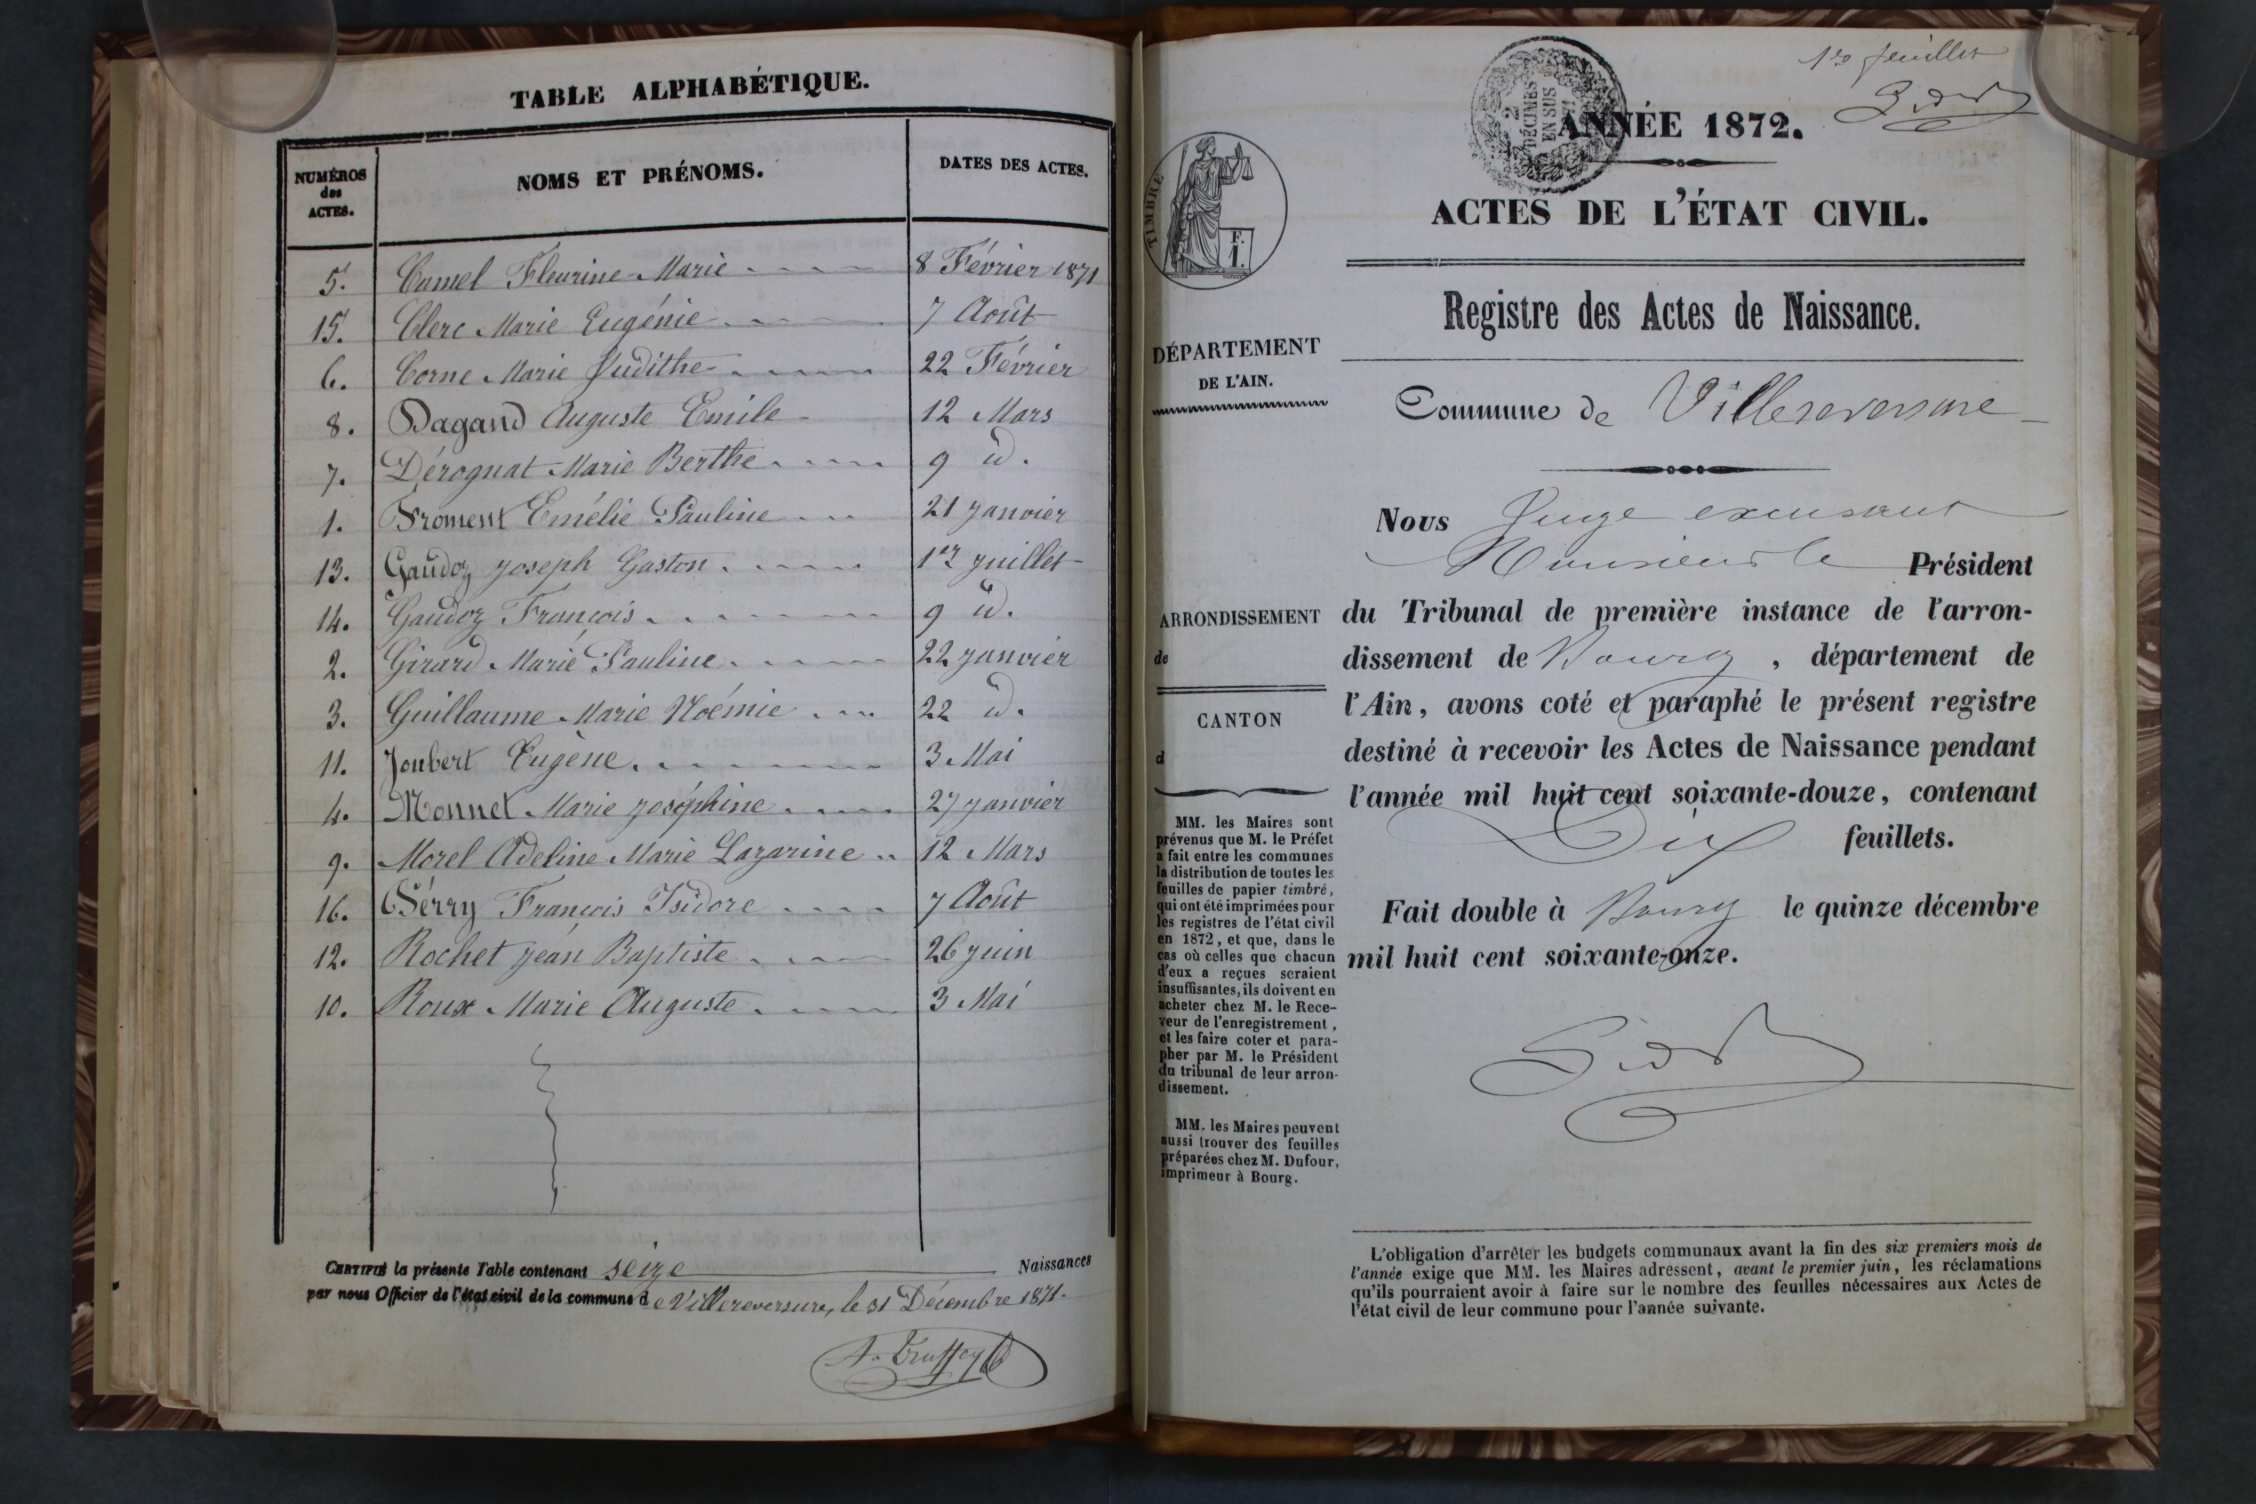 TABLE ALPHABÉTIQUE.
NUMÉROS des ACTES. NOMS ET PRÉNOMS. DATES DES ACTES.
5. Camel Fleurine Marie 8 Février 1871
15. Clerc Marie Eugénie 7 Août
6. Corne Marie Judithe 22 Février
8. Dagand Auguste Emile 12 Mars
7. Dérognat Marie Berthe 9 id.
1. Froment Emélie Pauline 21 janvier
13. Gaudoz joseph Gaston 1er juillet
14. Gaudoz François 9 id.
2. Girard Marie Pauline 22 janvier
3. Guillaume Marie Noémie 22 id.
11. Joubert Eugène 3 Mai
4. Monnet Marie joséphine 27 janvier
9. Morel Adeline Marie Lazarine 12 Mars
16. Périy François Isidore 7 Août
12. Rochet jean Baptiste 26 juin
10. Roux Marie Auguste 3 Mai
CERTIFIÉ la présente Table contenant seize Naissances
par nous Officier de l'état civil de la commune de Villereversure, le 31 Décembre 1871.
1re feuillet
2 DÉCIMES EN SUS 71
ANNÉE 1872.
ACTES DE L'ÉTAT CIVIL.
Registre des Actes de Naissance.
Commune de Villereversure
Nous Juge excusant
Monsieur le Président
du Tribunal de première instance de l'arron-
dissement de Bourg, département de
l'Ain, avons coté et paraphé le présent registre
destiné à recevoir les Actes de Naissance pendant
l'année mil huit cent soixante-douze, contenant
Dix feuillets.
Fait double à Bourg le quinze décembre
mil huit cent soixante-onze.
L'obligation d'arrêter les budgets communaux avant la fin des six premiers mois de
l'année exige que MM. les Maires adressent, avant le premier juin, les réclamations
qu'ils pourraient avoir à faire sur le nombre des feuilles nécessaires aux Actes de
l'état civil de leur commune pour l'année suivante.
TIMBRE
F. 1.
DÉPARTEMENT
DE L'AIN.
ARRONDISSEMENT
de
CANTON
d
MM. les Maires sont
prévenus que M. le Préfet
a fait entre les communes
la distribution de toutes les
feuilles de papier timbré,
qui ont été imprimées pour
les registres de l'état civil
en 1872, et que, dans le
cas où celles que chacun
d'eux a reçues seraient
insuffisantes, ils doivent en
acheter chez M. le Rece-
veur de l'enregistrement,
et les faire coter et para-
pher par M. le Président
du tribunal de leur arron-
dissement.
MM. les Maires peuvent
aussi trouver des feuilles
préparées chez M. Dufour,
imprimeur à Bourg.